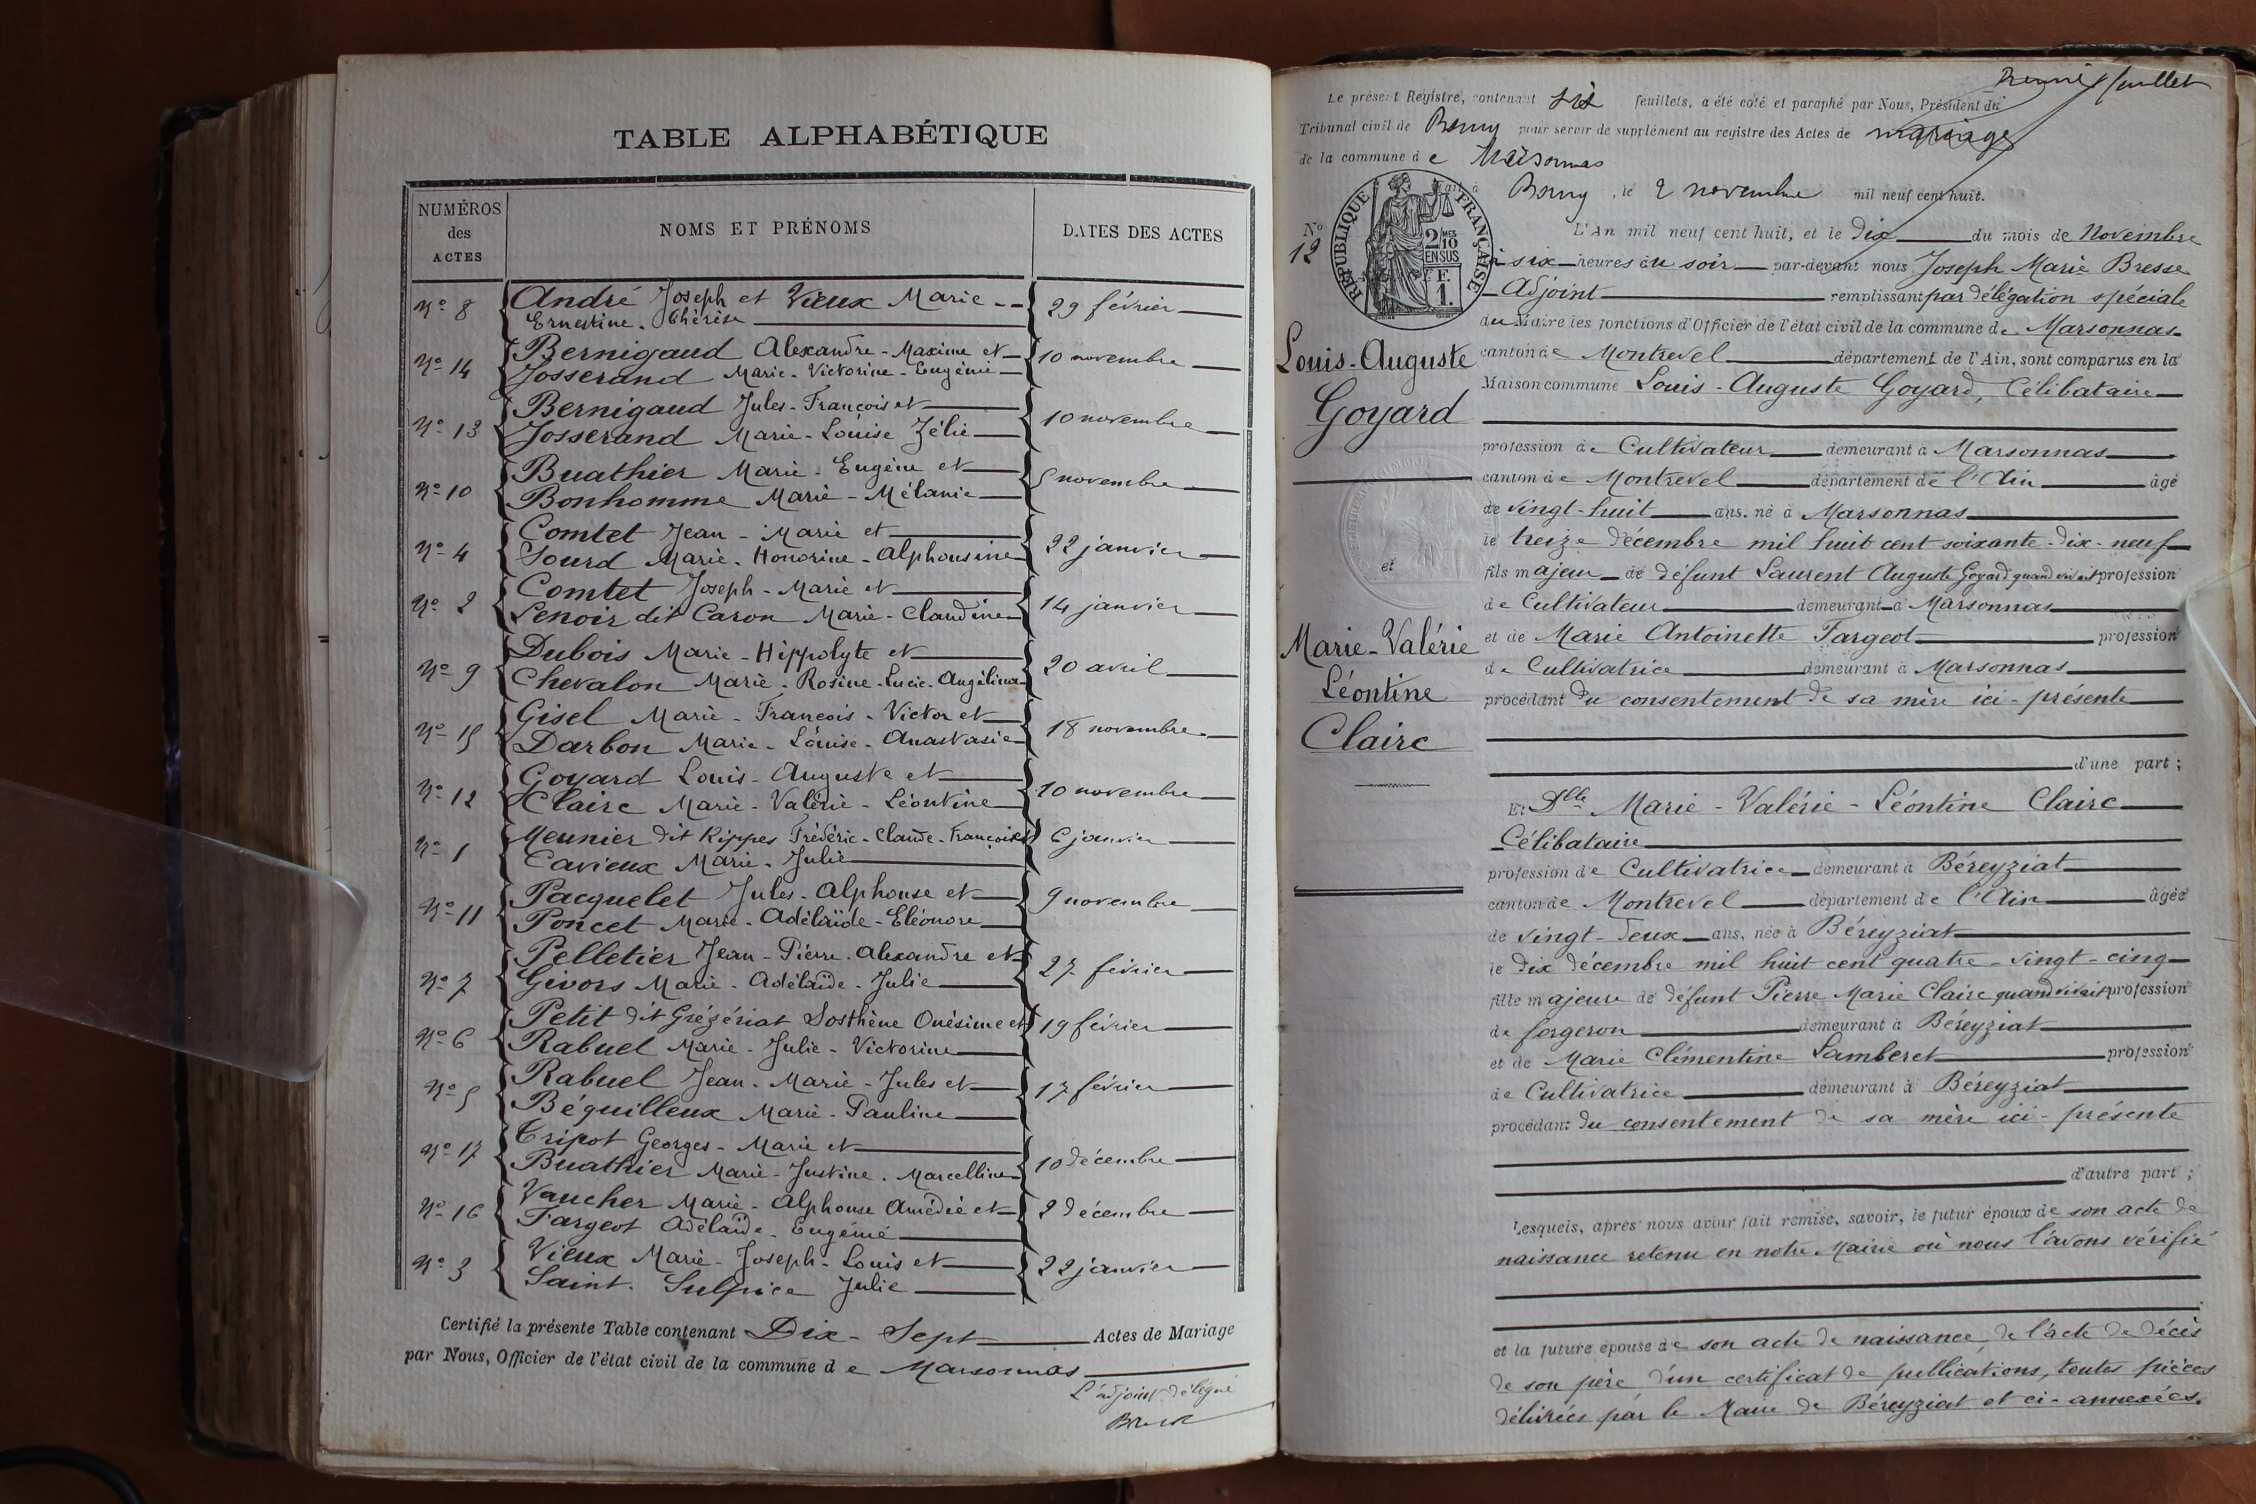 TABLE ALPHABÉTIQUE
NUMÉROS
des
ACTES
NOMS ET PRÉNOMS
DATES DES ACTES
No 8 André Joseph et Vieux Marie 29 février
Ernestine. Thérèse
Bernigaud Alexandre - Maxime et
No 14 Josserand Marie - Victorine - Eugénie 10 novembre
Bernigaud Jules - François et
No 13 Josserand Marie - Louise Zélie 10 novembre
Buathier Marie - Eugène et
No 10 Bonhomme Marie - Mélanie 5 novembre
Comtet Jean - Marie et
No 4 Sourd Marie - Honorine - Alphonsine 22 janvier
Comtet Joseph - Marie et
No 2 Lenoir dit Caron Marie - Claudine 14 janvier
Dubois Marie - Hippolyte et
No 9 Chevalon Marie - Rosine - Lucie - Angélina 20 avril
Gisel Marie - François - Victor et
No 15 Darbon Marie - Louise - Anastasie 18 novembre
Goyard Louis - Auguste et
No 12 Claire Marie - Valérie - Léontine 10 novembre
Meunier dit Rippes Frédéric - Claude - François et
No 1 Cavieux Marie - Julie 6 janvier
Pacquelet Jules - Alphonse et
No 11 Poncet Marie - Adélaïde - Eléonore 9 novembre
Pelletier Jean - Pierre - Alexandre et
No 7 Givors Marie - Adélaïde - Julie 27 février
Petit dit Grézériat Sosthène Onésime et
No 6 Rabuel Marie - Julie - Victorine 19 février
Rabuel Jean - Marie - Jules et
No 5 Béguilleux Marie - Pauline 17 février
Tripot Georges - Marie et
No 17 Buathier Marie - Justine - Marcelline 10 décembre
Vaucher Marie - Alphonse Amédée et
No 16 Fargeot Adélaïde - Eugénie 2 décembre
Vieux Marie - Joseph - Louis et
No 3 Saint - Sulpice Julie 22 janvier
Certifié la présente Table contenant Dix - Sept Actes de Mariage
par Nous, Officier de l'état civil de la commune de Marsonnas
L'adjoint délégué
Bresse
feuillet
Le présent Registre, contenant six feuillets, a été coté et paraphé par Nous, Président du
Tribunal civil de Bourg pour servir de supplément au registre des Actes de mariage
de la commune de Marsonnas
Fait à Bourg, le 2 novembre mil neuf cent huit.
RÉPUBLIQUE FRANÇAISE
2 MES
10
EN SUS
F.
1.
No
12
L'An mil neuf cent huit, et le dix du mois de Novembre
à six heures du soir par-devant nous Joseph Marie Bresse
Adjoint remplissant par délégation spéciale
du Maire les fonctions d'Officier de l'état civil de la commune de Marsonnas
canton de Montrevel département de l'Ain, sont comparus en la
Maison commune Louis - Auguste Goyard, Célibataire
Louis - Auguste
Goyard
profession de Cultivateur demeurant à Marsonnas
canton de Montrevel département de l'Ain âgé
de vingt - huit ans. né à Marsonnas
le treize décembre mil huit cent soixante - dix - neuf
et
fils majeur de défunt Laurent Auguste Goyard quand vivait profession
de Cultivateur demeurant à Marsonnas
et de Marie Antoinette Fargeot profession
de Cultivatrice demeurant à Marsonnas
procédant du consentement de sa mère ici - présente
Marie - Valérie
Léontine
Claire
d'une part ;
Et Dlle Marie - Valérie - Léontine Claire
Célibataire
profession de Cultivatrice demeurant à Béreyziat
canton de Montrevel département de l'Ain âgée
de vingt - deux ans, née à Béreyziat
le dix décembre mil huit cent quatre - vingt - cinq
fille majeure de défunt Pierre Marie Claire quand vivait profession
de forgeron demeurant à Béreyziat
et de Marie Clémentine Lamberet profession
de Cultivatrice demeurant à Béreyziat
procédant du consentement de sa mère ici - présente
d'autre part ;
Lesquels, après nous avoir fait remise, savoir, le futur époux de son acte de
naissance retenu en notre Mairie où nous l'avons vérifié
et la future épouse de son acte de naissance, de l'acte de décès
de son père d'un certificat de publications, toutes pièces
délivrées par le Maire de Béreyziat et ci - annexées.